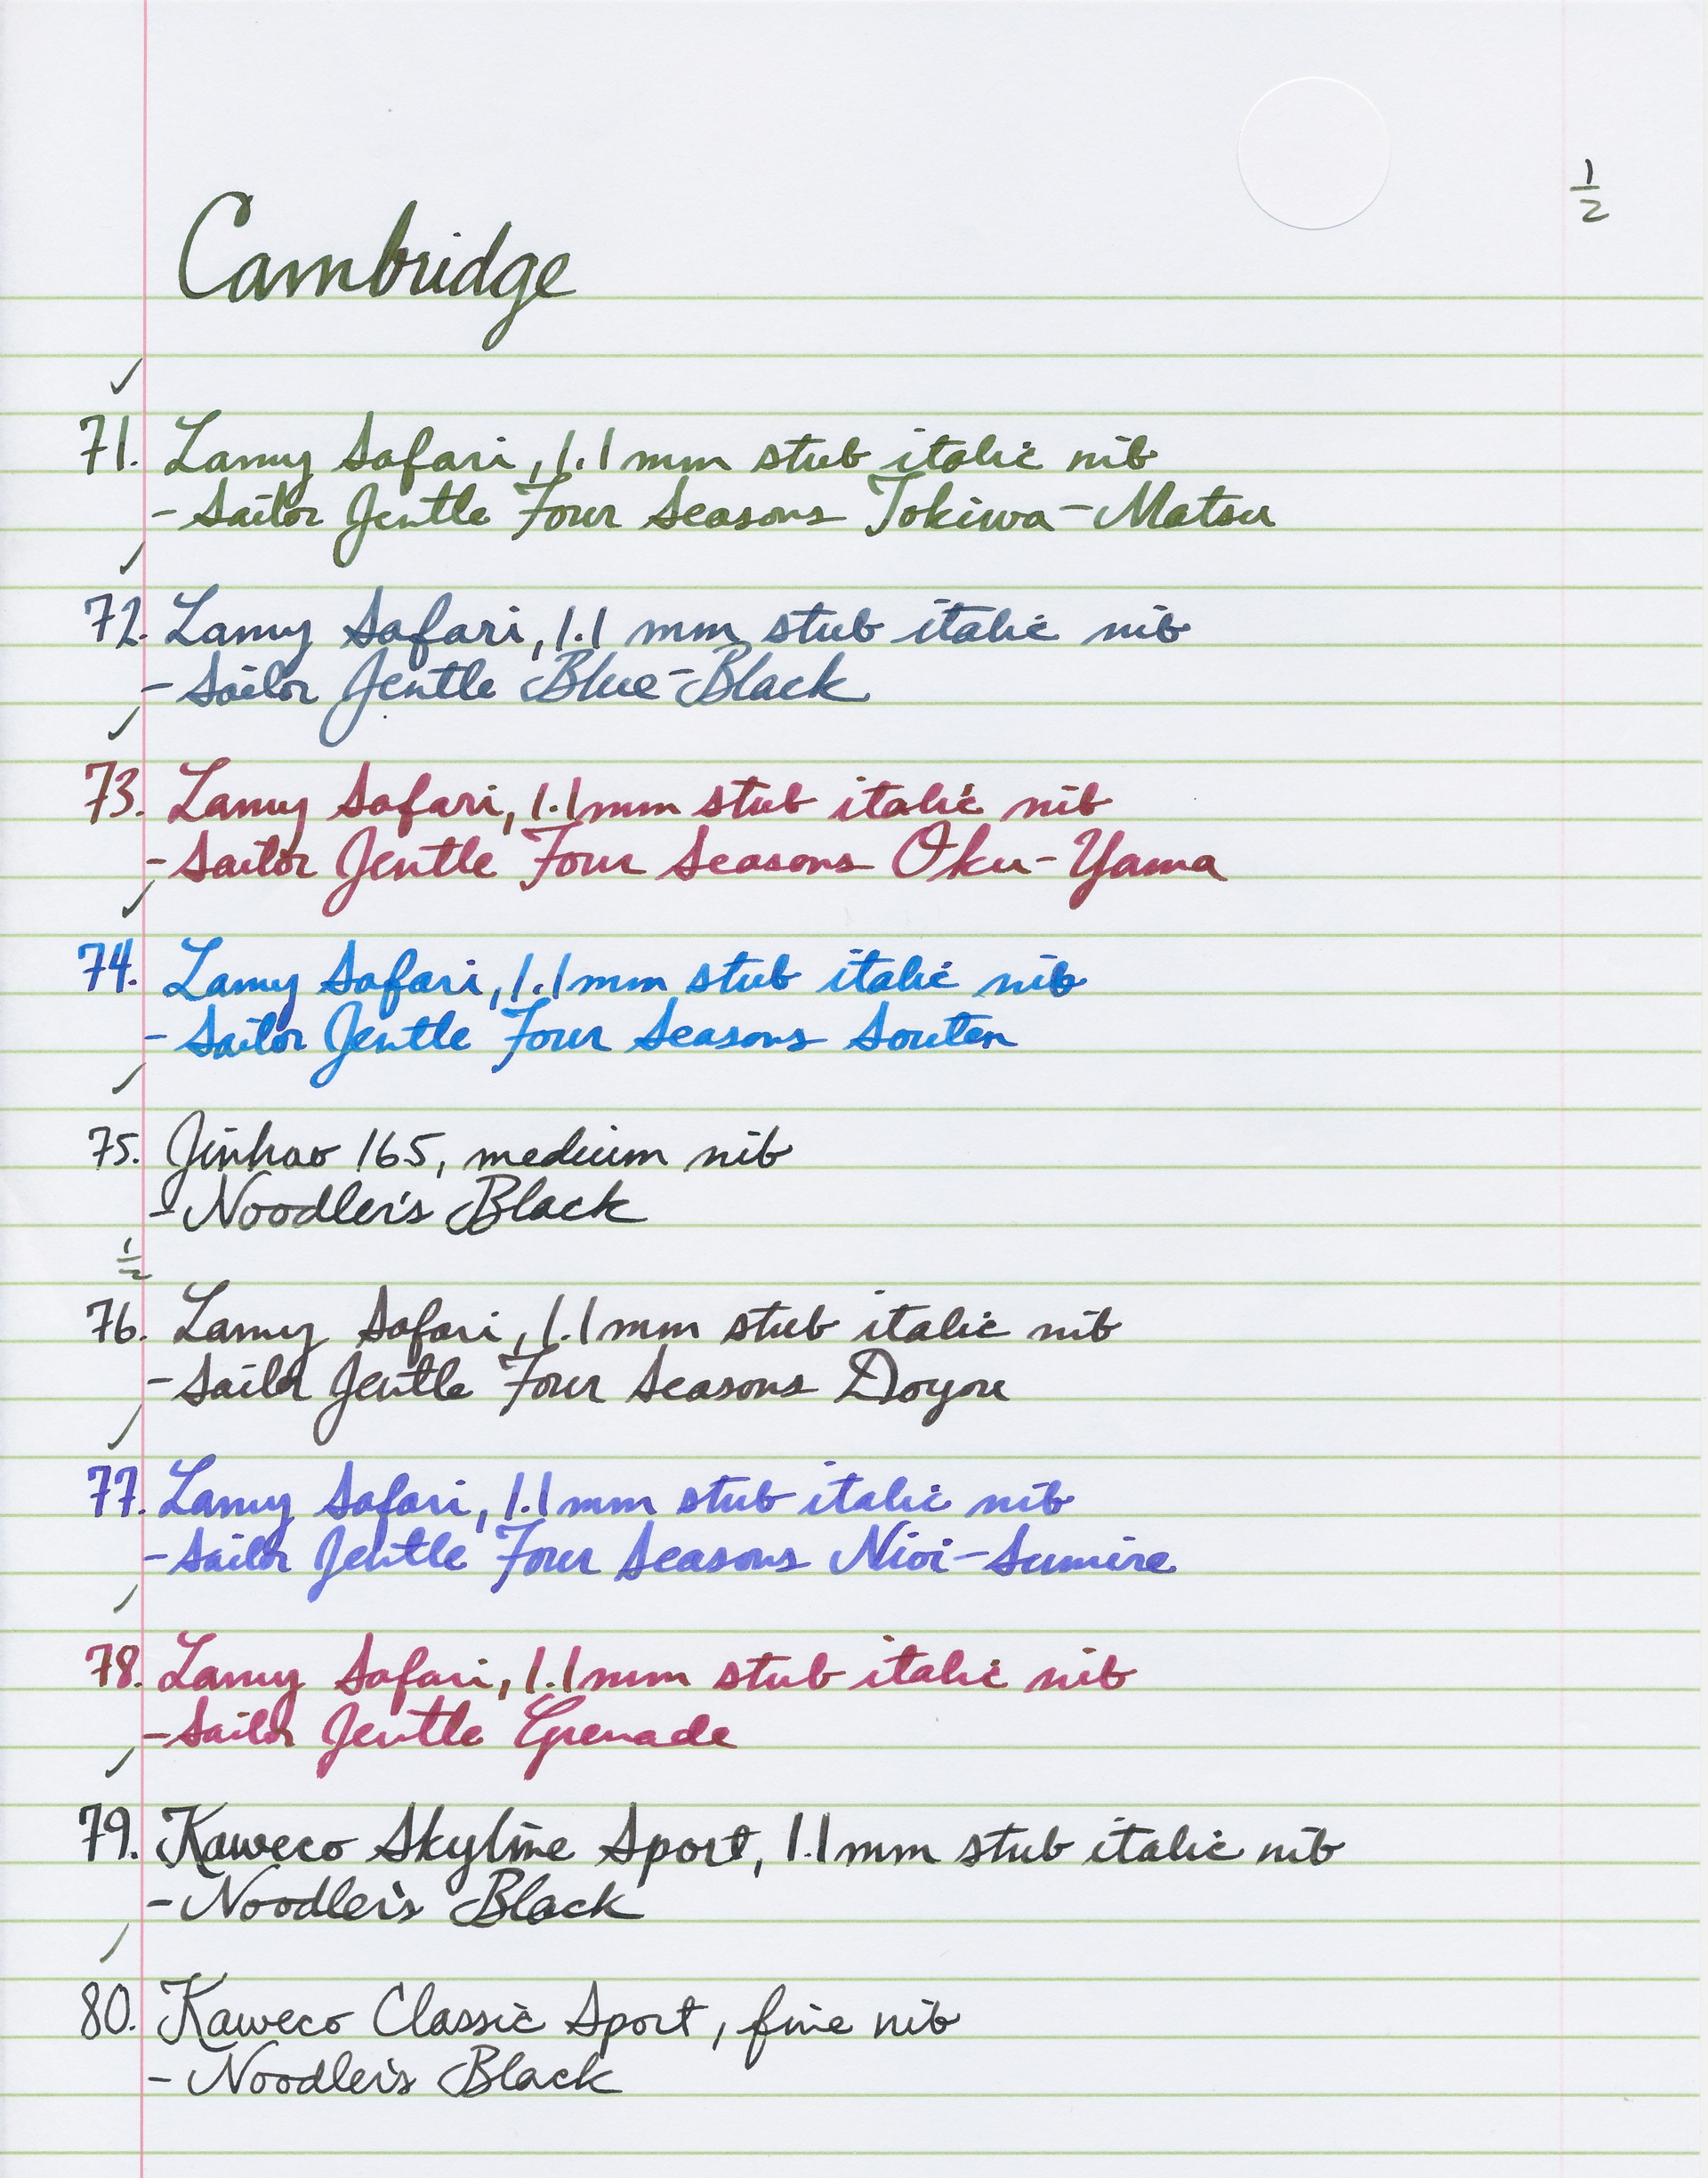 1/2
Cambridge
✓
71. Lamy Safari, 1.1mm stub italic nib
- Sailor Jentle Four Seasons Tokiwa-Matsu
✓
72. Lamy Safari, 1.1 mm stub italic nib
- Sailor Jentle Blue-Black
✓
73. Lamy Safari, 1.1mm stub italic nib
- Sailor Jentle Four Seasons Oku-Yama
✓
74. Lamy Safari, 1.1mm stub italic nib
- Sailor Jentle Four Seasons Souten
✓
75. Jinhao 165, medium nib
- Noodler's Black
1/2
76. Lamy Safari, 1.1mm stub italic nib
- Sailor Jentle Four Seasons Doyou
✓
77. Lamy Safari, 1.1mm stub italic nib
- Sailor Jentle Four Seasons Nioi-Sumire
✓
78. Lamy Safari, 1.1mm stub italic nib
- Sailor Jentle Grenade
✓
79. Kaweco Skyline Sport, 1.1mm stub italic nib
- Noodler's Black
✓
80. Kaweco Classic Sport, fine nib
- Noodler's Black